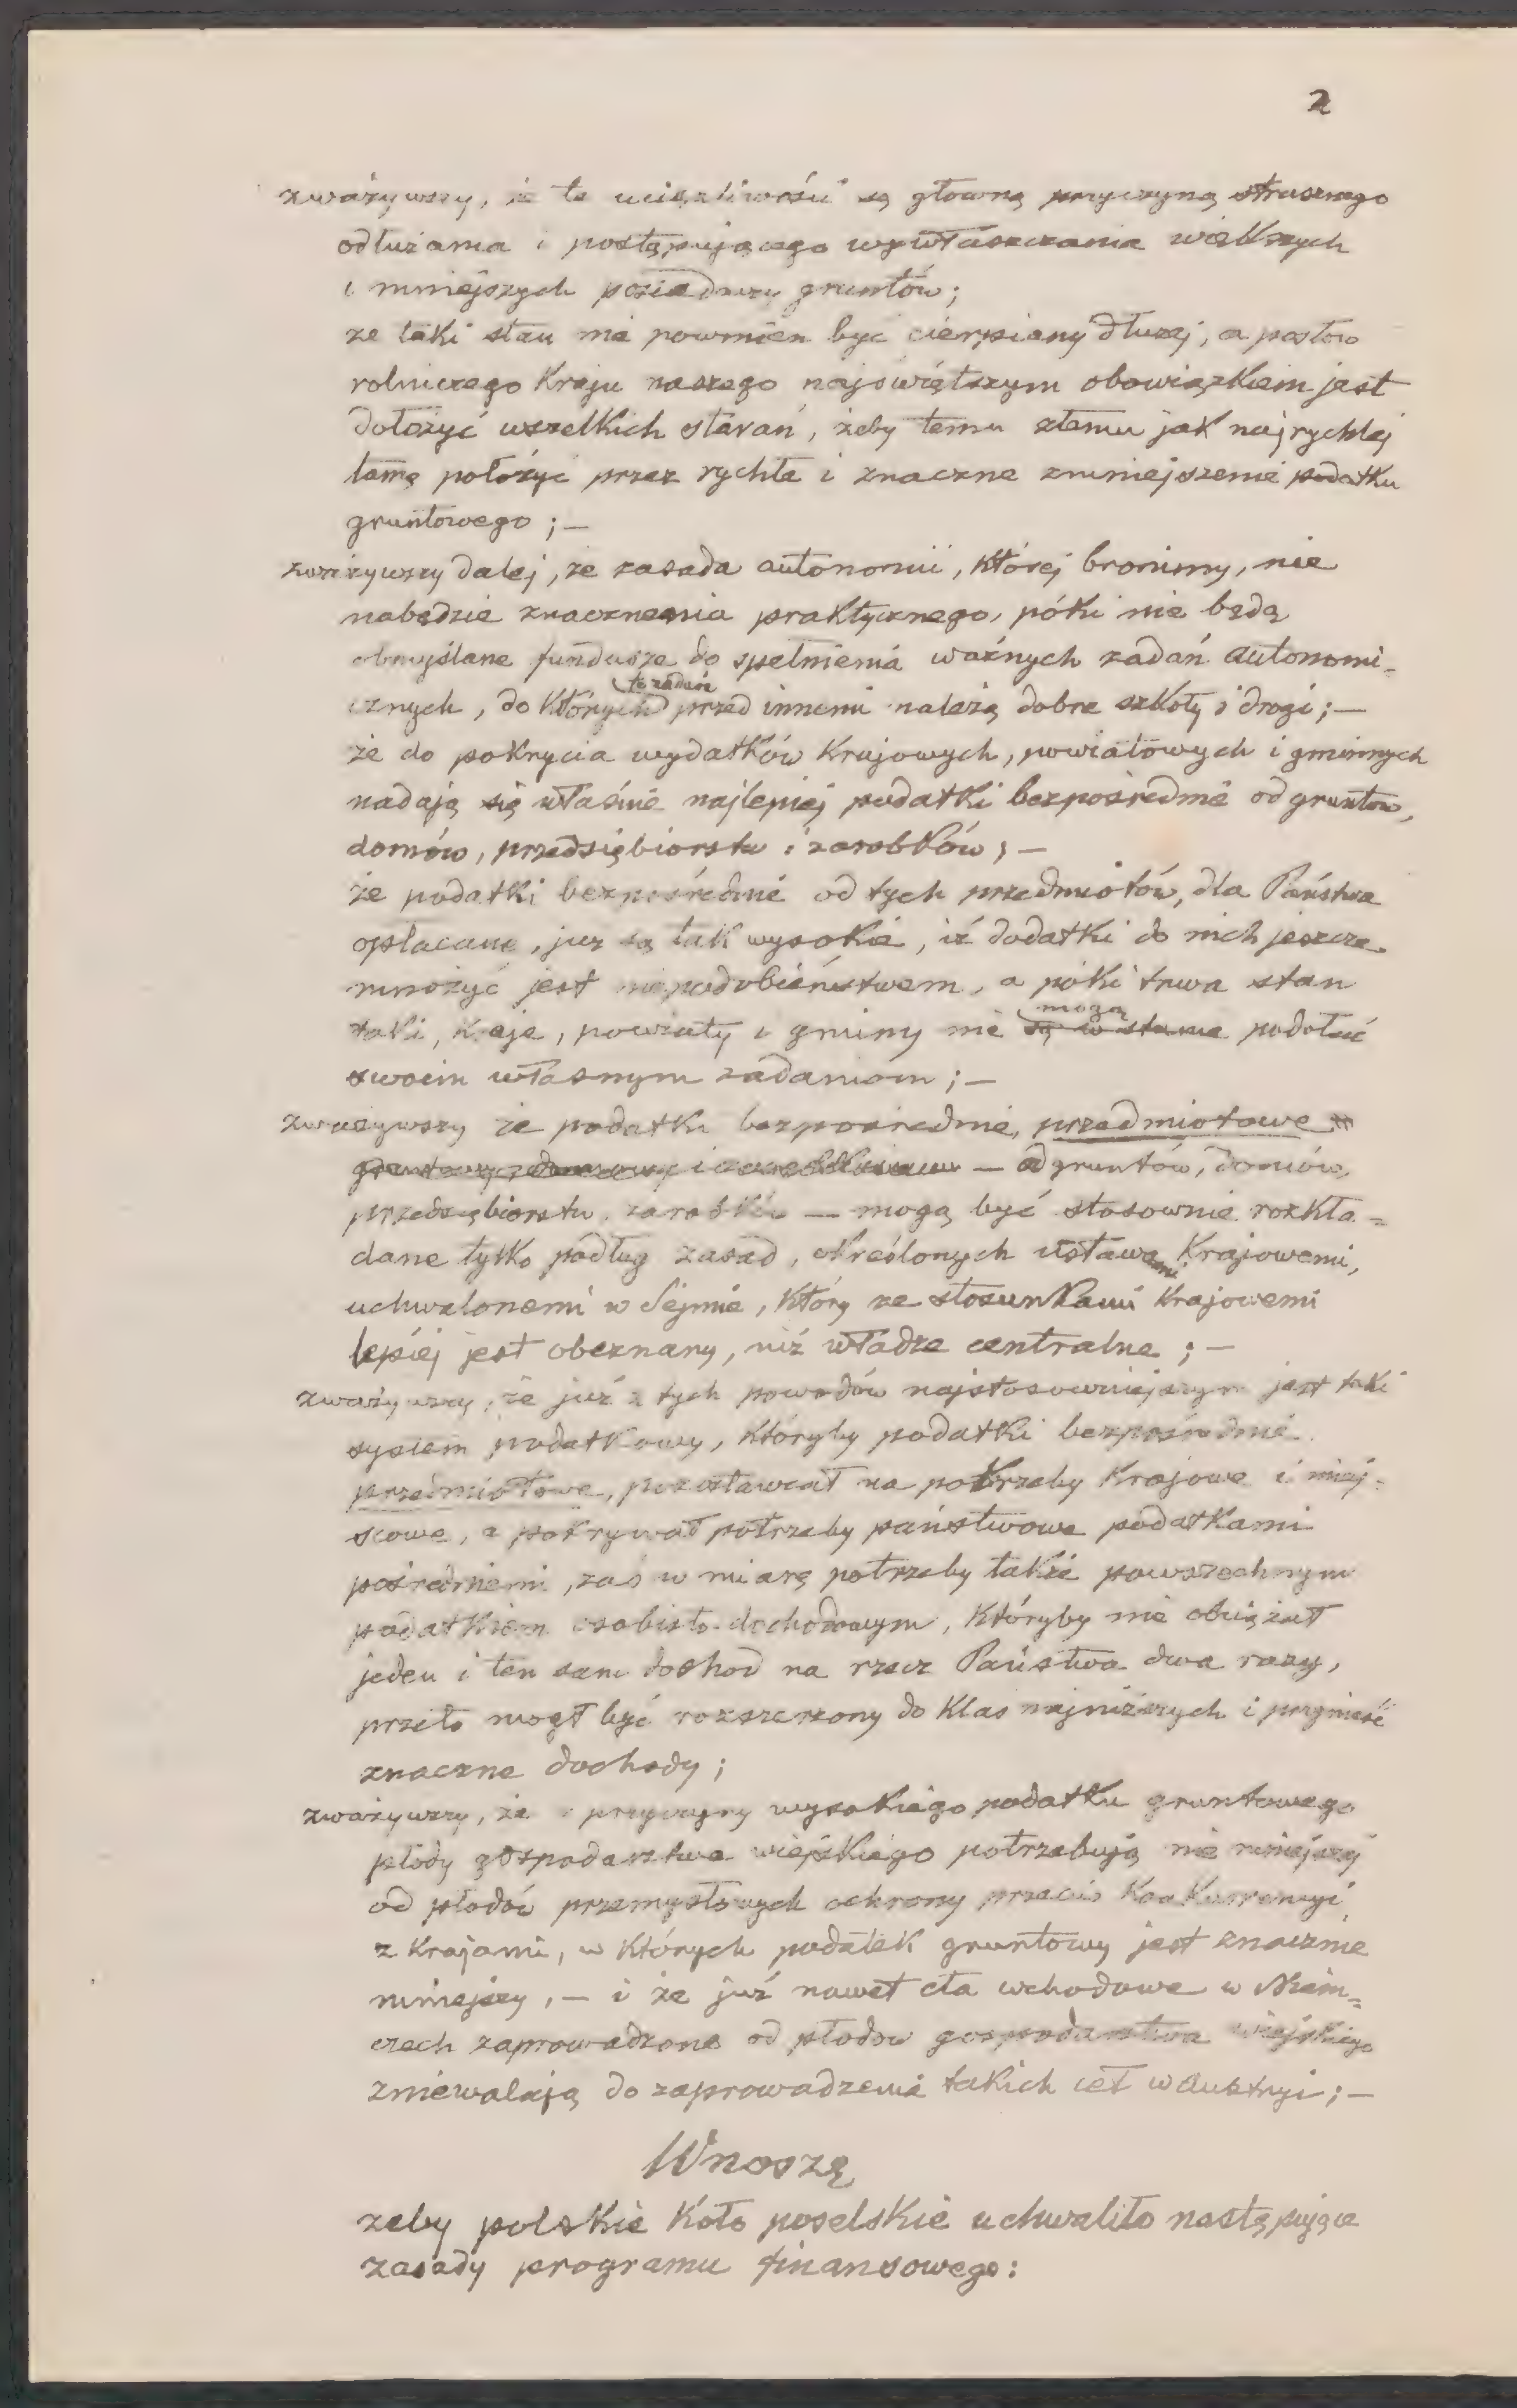 2
zważywszy, że te uciążliwości są główną przyczyną strasznego
odłużania i postępującego wywłaszczania większych
i mniejszych posiadaczy gruntów;
że taki stan nie powinien być cierpiany dłużej, a posłów
rolniczego Kraju naszego najświętszym obowiązkiem jest
dołożyć wszelkich starań, żeby temu złemu jak najrychlej
tamę położyć przez rychłe i znaczne zmniejszenie podatku
gruntowego ; —
zważywszy dalej, że zasada autonomii, której bronimy, nie
nabędzie znaczenia praktycznego, póki nie będą
obmyślane fundusze do spełnienia ważnych zadań autonomi-
cznych, do których przed innemi należą dobre szkoły i drogi; —
że do pokrycia wydatków Krajowych, powiatowych i gminnych
nadają się właśnie najlepiej podatki bezpośrednie od gruntów,
domów, przedsiębiorstw i zarobków; —
że podatki bezpośrednie od tych przedmiotów, dla Państwa
opłacane, już są tak wysokie, iż dodatki do nich jeszcze
mnożyć jest niepodobieństwem, a póki trwa stan
mogą
taki, Kraje, powiaty i gminy nie są w stanie podołać
swoim własnym zadaniom ; —
zważywszy że podatki bezpośrednie, przedmiotowe
— od gruntów, domów,
przedsiębiorstw, zarobków — mogą być stosownie rozkła=
dane tylko podług zasad, określonych ustawami Krajowemi,
uchwalonemi w Sejmie, który ze stosunkami Krajowemi
lepiej jest obeznany, niż władze centralne ; —
zważywszy, że już z tych powodów najstosowniejszym jest taki
system podatkowy, któryby podatki bezpośrednie
przedmiotowe, pozostawiał na potrzeby Krajowe i miej=
scowe, a pokrywał potrzeby państwowe podatkami
pośredniemi, zaś w miarę potrzeby także powszechnym
podatkiem osobisto-dochodowym, któryby nie obciążał
jeden i ten sam dochod na rzecz Państwa dwa razy,
przeto mogł być rozszerzony do Klas najniższych i przynieść
znaczne dochody ;
zważywszy, że z przyczyny wysokiego podatku gruntowego
płody gospodarstwa wiejskiego potrzebują nie mniejszej
od płodów przemysłowych ochrony przeciw Konkurencyi
z Krajami, w których podatek gruntowy jest znacznie
mniejszy, — i że już nawet cła wchodowe w Niem=
czech zaprowadzone od płodów gospodarstwa wiejskiego
zniewalają do zaprowadzenia takich ceł w Austryi ; —
Wnoszę
żeby polskie Koło poselskie uchwaliło następujące
zasady programu finansowego: